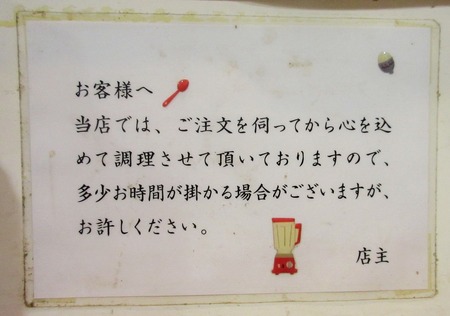 お客様へ
当店では、ご注文を伺ってから心を込
めて調理させて頂いておりますので、
多少お時間が掛かる場合がございますが、
お許しください。
店主